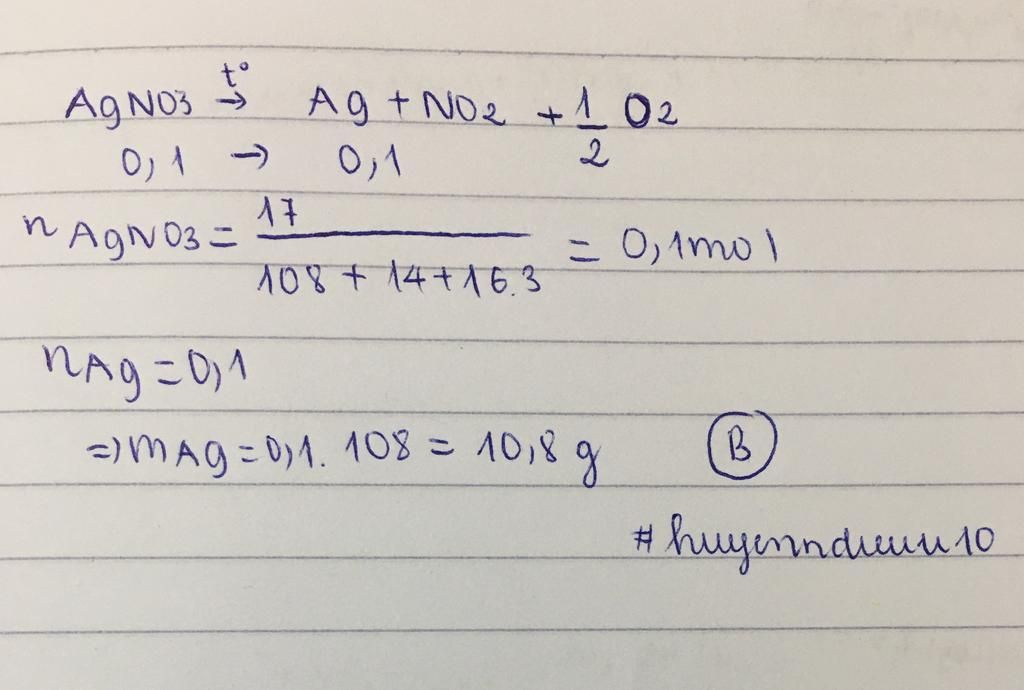 t°
AgNO3 → Ag + NO2 + 1/2 O2
0,1 → 0,1
nAgNO3 = 17 / (108 + 14 + 16.3) = 0,1mol
nAg = 0,1
=> mAg = 0,1. 108 = 10,8 g B
#huyenndieuu10